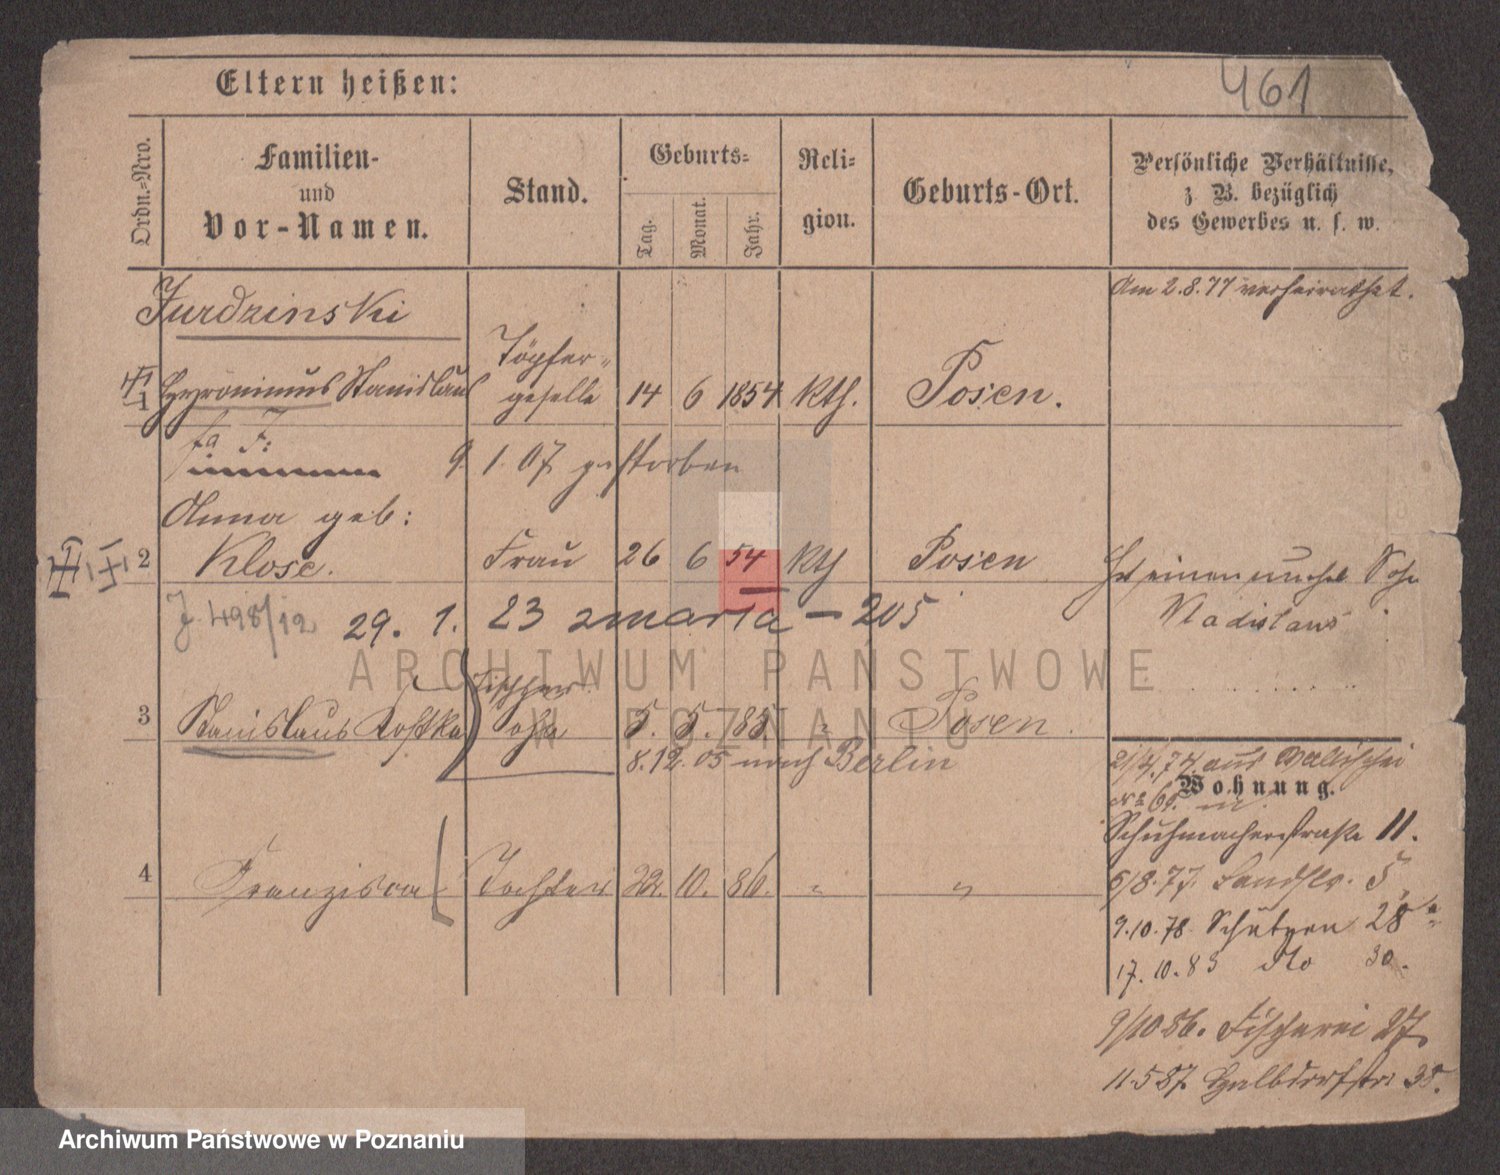 461
Eltern heißen:
Ordn.-Nro.
Familien-
und
Vor-Namen.
Stand.
Geburts-
Tag.
Monat.
Jahr.
Reli-
gion.
Geburts-Ort.
Persönliche Verhältnisse,
z. B. bezüglich
des Gewerbes u. s. w.
Jurdzinski
Am 2.8.77 verheirathet.
Töpfer-
1 Hyronimus Stanislaus geselle 14 6 1854 kth. Posen.
9. 1. 07 gestorben
Anna geb:
2 Klose. Frau 26 6 54 kth Posen
Hat einen unehel. Sohn
Vladislaus
J. 498/12 29. 1. 23 zmarła — 205
Tischler
3 Stanislaus Kostka Sohn 5. 5. 85 " Posen.
8.12.05 nach Berlin
2/4.77 aus Wallischei
Wohnung.
No 65.
Schuhmacherstraße 11.
4 Franzisca Tochter 22. 10. 86. " "
6/8.77. 5.
9.10.78 Schützen 28
17.10.83 dto 30.
9/10 86. Fischerei 27
11.5 87. Halbdorfstr 38.
ARCHIWUM PAŃSTWOWE
W POZNANIU
Archiwum Państwowe w Poznaniu